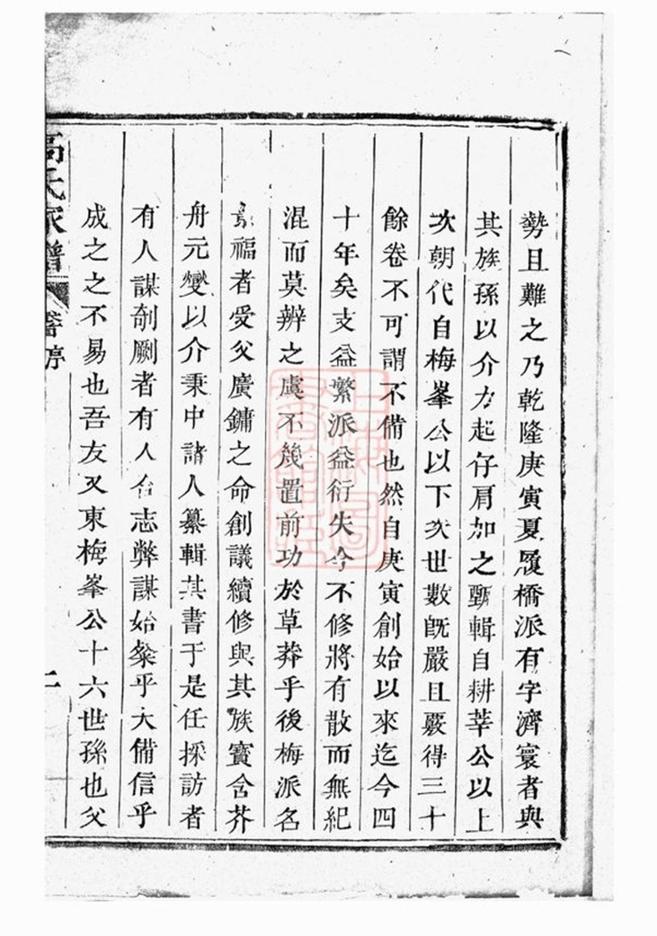 勢且難之乃乾隆庚寅夏履橋派有字濟寰者與
其族孫以介力起仔肩加之甄輯自耕莘公以上
次朝代自梅峯公以下次世數旣嚴且覈得三十
餘卷不可謂不備也然自庚寅創始以來迄今四
十年矣支益繁派益衍失今不修將有散而無紀
混而莫辨之虞不幾置前功於草莽乎後梅派名
景福者受父廣鏞之命創議續修與其族寶含芥
舟元燮以介秉中諸人纂輯其書于是任採訪者
有人謀剞劂者有人合志弊謀始粲乎大備信乎
成之之不易也吾友又東梅峯公十六世孫也父
高氏家譜 舊序 二